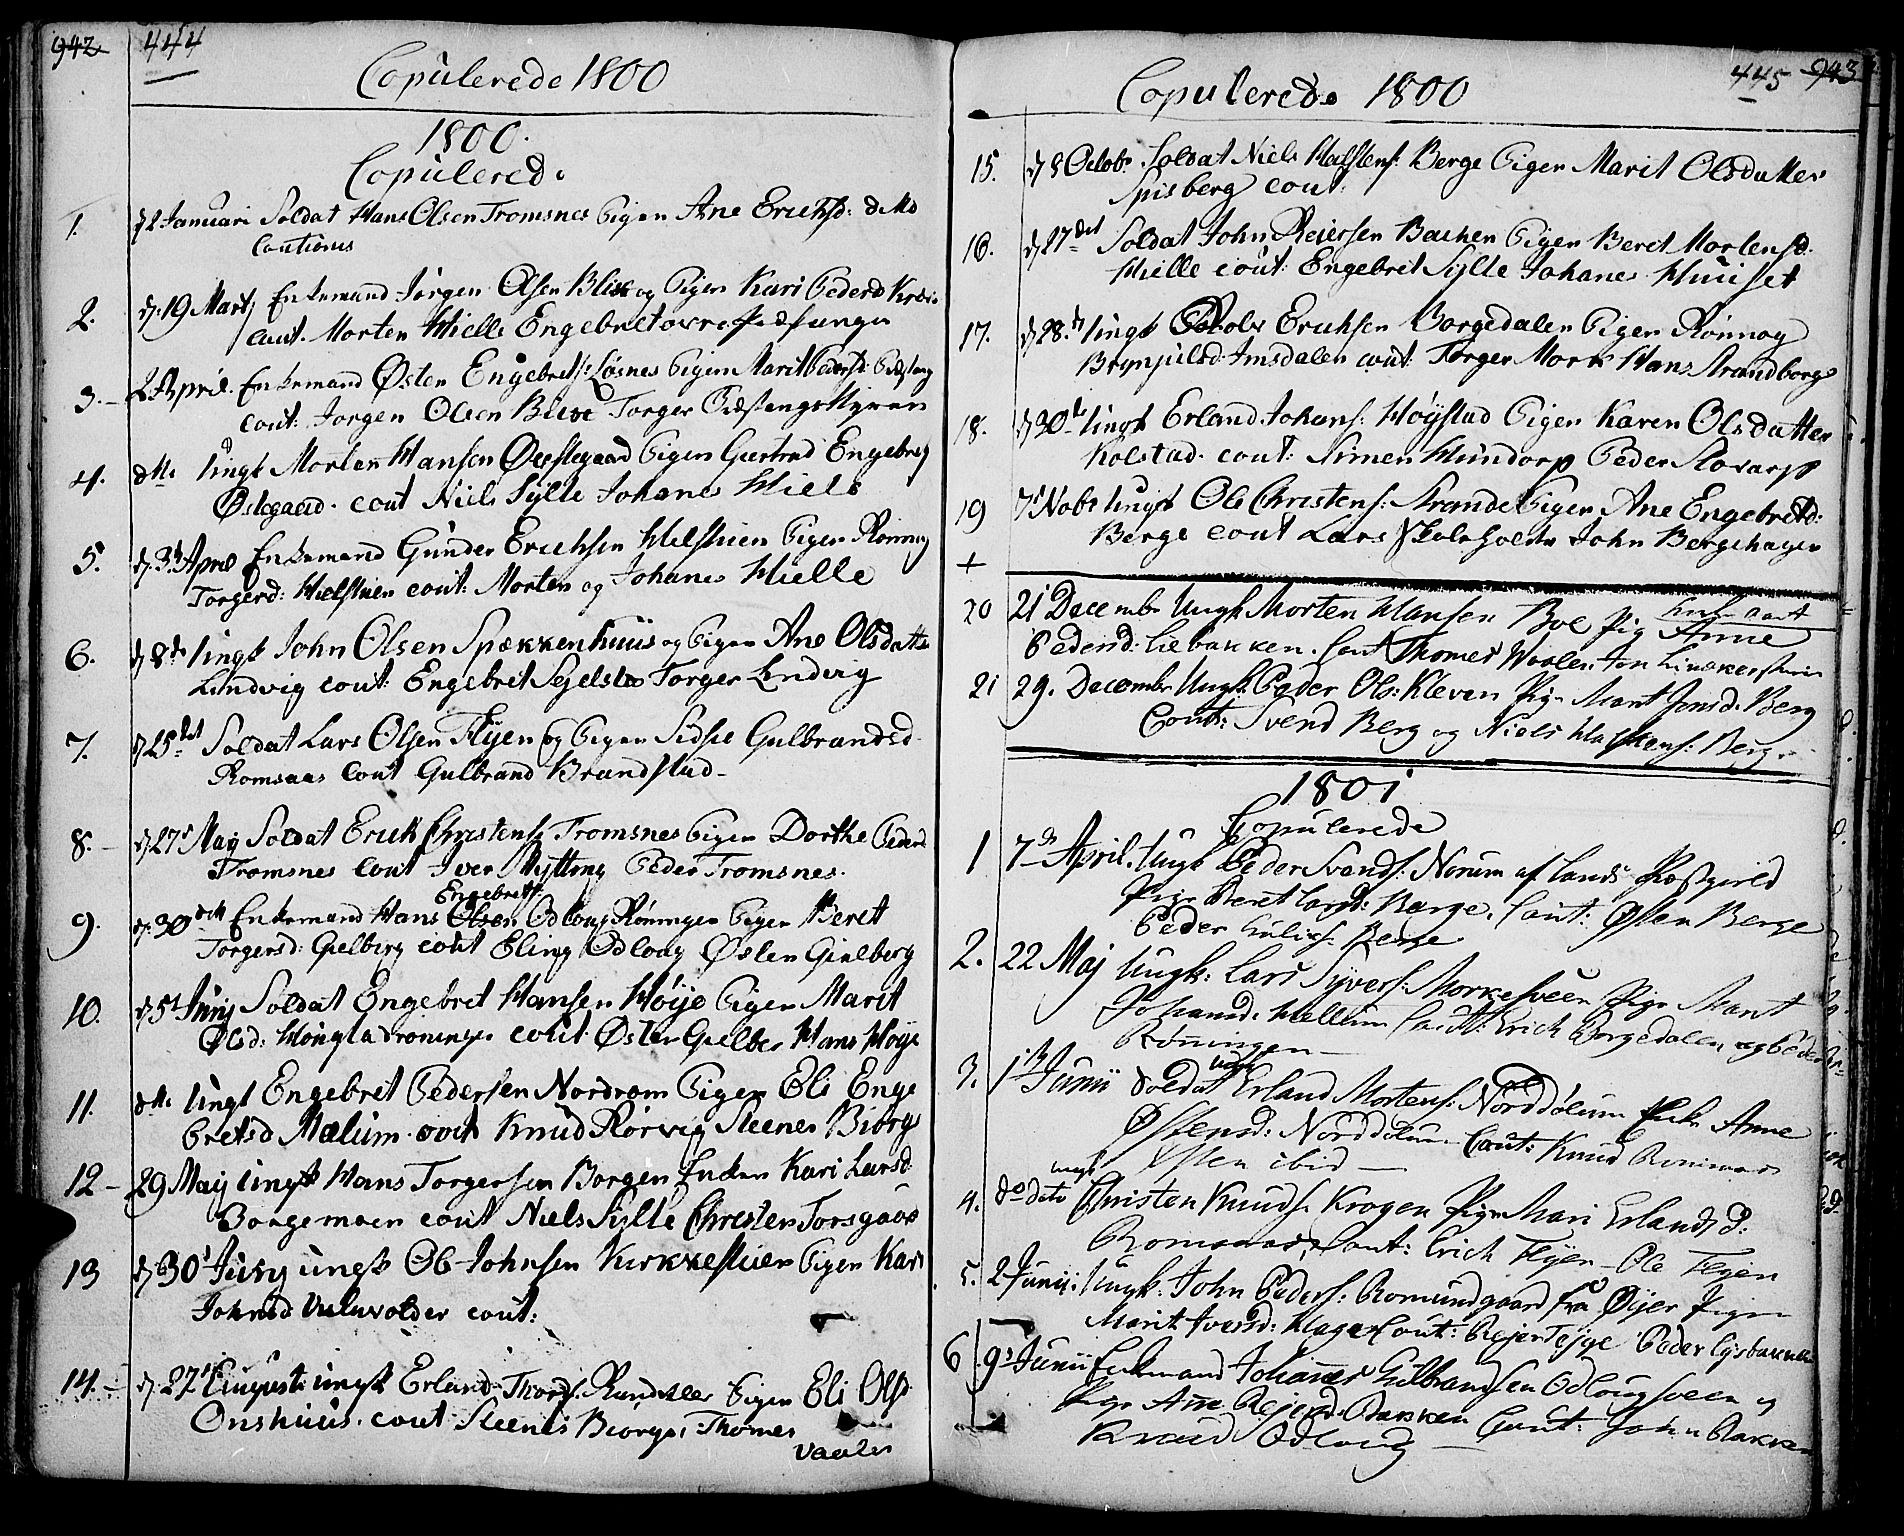 942 444
Copulerede 1800
1800.
Copulerede
1. d 2 Januari Soldat Hans Olsen Tromsnes Pigen Ane Erichsd: ditto
Cautions
2. d. 19 Marti Enkemand Jørgen Olsen og Pigen Kari Peders
cout. Morten Hielle Engebret
3. 2 April. Enkemand Østen Engebrets: Løsnes Pigen Marit Pedersd:
cout: Jørgen Olsen Torger
4. dtto Ungk Morten Hansen Østegaard Pigen Giertrud Engebrets
Østegaard. cout Niels Sylte Johanes Hiele
5. d. 3 April Enkemand Gunder Erichsen Pigen Rønnog
Torgersd: cout: Morten og Johanes Hielle
6. d 8de Ungk John Olsen Spækkenhuus og Pigen Ane Olsdatter
Lindvig cout: Engebret Torger Lindvig
7. d 25det Soldat Lars Olsen Flyen og Pigen Sidsie Gulbrandsd
Romsaas cout Gulbrand Brandstad
8. d 27 Maij Soldat Erick Christens: Tromsnes Pigen Dorthe Pedersd
Tromsnes cout Iver Nytting Peder Tromsnes.
Engebrets
9. d. 30 Enkemand Hans Olsen Odloug Rønningen Pigen Beret
Torgersd: Gielberg cout Eling Odloug Østen Gielberg
10. d 5 Junij Soldat Engebret Hansen Høije Pigen Marit
Olsd: cout Østen Hans Høije
11. dtto Ungk Engebret Pedersen Nordrom Pigen Eli Enge
bretsd Mælum. cout Knud Rørvig Steener Biørge
12 29 Maij Ungk Hans Torgersen Borgen Enken Kari Larsd
cout Niels Sylte Christen
13 d 30 Junij Ungk Ole Johnsen Kirkestuen Pigen Kari
Johnsd cout:
14. d. 27 Augusti ungk Erland Pigen Eli Olsd
Onshuus. cout Steener Biørge, Thomes
Vaalen
Copulerede 1800
445 943
15. d 8 Octobr. Soldat Niels Halstens: Berge Pigen Marit Olsdatter
Spisberg cout:
16. d 27det Soldat John Reiersen Bachen Pigen Beret Mortensd
Hielle cout: Engebret Sylte Johanes Huuset
17. d 28. Ungk Erichsen Borgedalen Pigen Rønnog
Brynjulsd: Amsdalen cout: Torger Mork Hans Strandborg
18. d 30te Ungk Erland Johans: Høystad Pigen Karen Olsdatter
Kolstad. cout: Simen Hundorp Peder
19 7 Nobr Ungk Ole Christens: Strande Pigen Ane Engebretd:
Berge cout Lars John Bergehagen
+
20 21 Decembr Ungk Morten Hansen Boe Pig Anne
Pedersd: Liebakken. Caut Thomes Woalen Jon
21 29. Decembr Ungk Peder Ols: Kleven Pige Marit Jonsd: Berg
Caut: Svend Berg og Niels Halstens: Berg.
1801
Copulerede
1 7de April. Ungk Peder Svends: Norum af Lands Præstgield
Pige Beret Larsd: Berge. Caut: Østen Berge
Peder Berge
2. 22 Maj Ungk: Lars Syvers: Morkesveen Pige Marit
Johansd: Mællum Caut: Erich Borgedalen og Peder
Rønningen
3. 1ste Junii Soldat Ungk Erland Mortens: Norddølum Anne
Østensd: Norddølum Caut: Knud
Østen ibid
4. do dato ungk Christen Knuds: Krogen Pige Mari Erlandsd:
Romsaas. Caut: Erich Flyen - Ole Flyen
5. 2 Junii. Ungk: John Peders: Romundgaard fra Øyer Pige
Marit Iversd: Hage Caut: Rejer Peder
6 9 Junii Enkemand Johannes Gulbrandsen Odlougsveen og
Pige Ane Rejersd: Bakken Caut: John Bakken
Knud Odloug